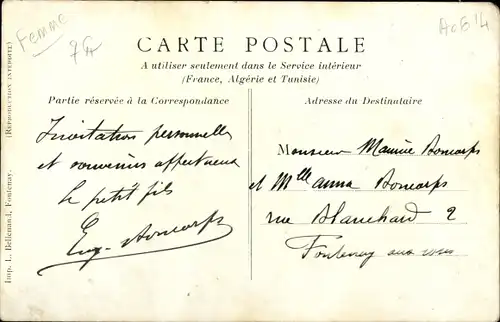 Femme
7F
A0614
CARTE POSTALE
A utiliser seulement dans le Service intérieur
(France, Algérie et Tunisie)
Partie réservée à la Correspondance
Adresse du Destinataire
Invitation personnelle
et souvenirs affectueux
Le petit fils
Eug. Boncorps
Monsieur Maurice Boncorps
et Mlle anna Boncorps
rue Blanchard 2
Fontenay aux roses
(REPRODUCTION INTERDITE)
Imp. L. Bellenand, Fontenay.